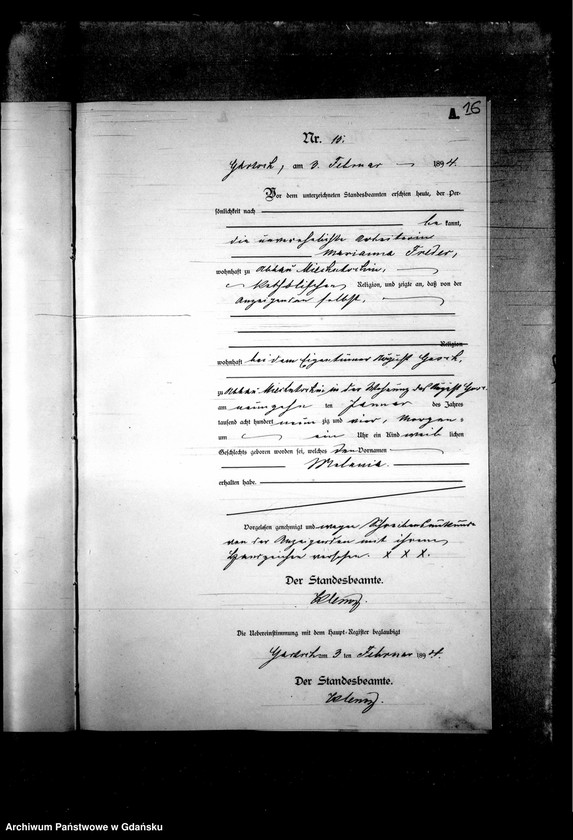 A. 16
Nr. 10.
am 3. Februar 1894.
Vor dem unterzeichneten Standesbeamten erschien heute, der Per-
sönlichkeit nach
be kannt,
die unverehelichte Arbeiterin
Marianna Treder,
wohnhaft zu Abbau
katholischer Religion, und zeigte an, daß von der
Anzeigenden selbst,
Religion
wohnhaft bei dem Eigentümer August
zu Abbau in der Wohnung des August
am neunzehn ten Januar des Jahres
tausend acht hundert neun zig und vier, Morgens
um ein Uhr ein Kind weib lichen
Geschlechts geboren worden sei, welches den Vornamen
Melania
erhalten habe.
Vorgelesen, genehmigt und wegen Schreibensunkunde
von der Anzeigenden mit ihrem
Handzeichen versehen. X X X.
Der Standesbeamte.
Die Uebereinstimmung mit dem Haupt-Register beglaubigt
am 3 ten Februar 1894.
Der Standesbeamte.
Archiwum Państwowe w Gdańsku